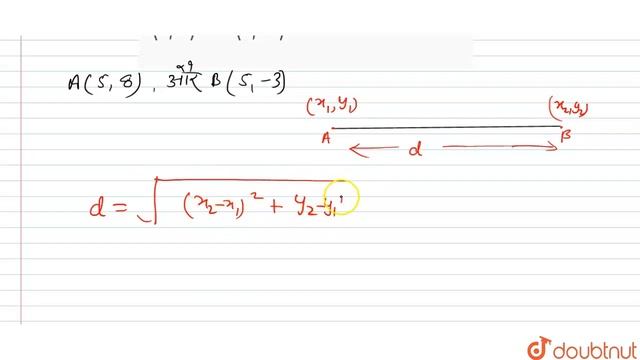 A(5, 8), और B(5, -3)
(x₁, y₁) (x₂, y₂)
A B
d
d = √(x₂-x₁)² + y₂-y₁
doubtnut